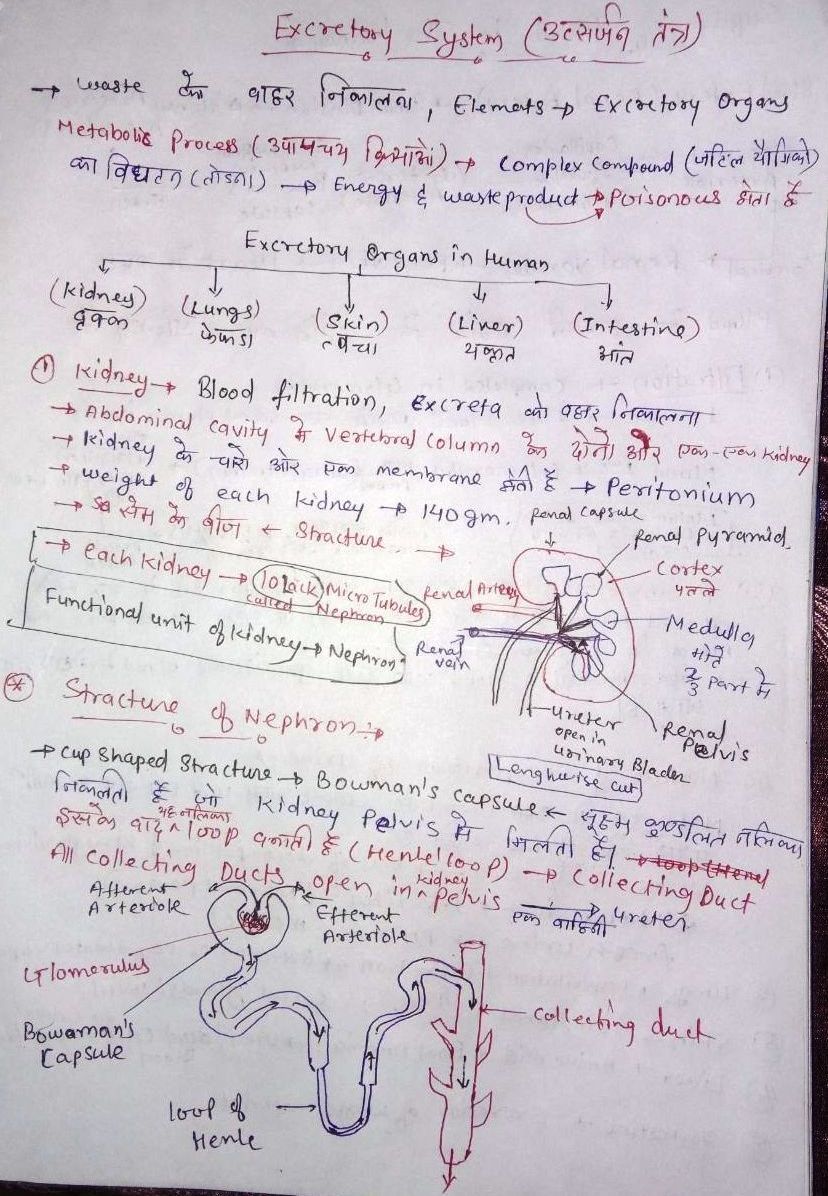 Excretory System (उत्सर्जन तंत्र)
→ waste को बाहर निकालना, Elemats → Excretory Organs
Metabolic Process (उपापचय क्रियाओं) → Complex Compound (जटिल यौगिको)
का विघटन (तोडना) → Energy & waste product → Poisonous होता है
Excretory Organs in Human
(Kidney) (Lungs) (Skin) (Liver) (Intestine)
वृक्क फेफडा त्वचा यकृत आंत
① Kidney → Blood filtration, Excreta को बाहर निकालना
→ Abdominal cavity मे vertebral column के दोनो ओर एक-एक kidney
→ Kidney के चारो ओर एक membrane होती है → Peritonium
→ weight of each kidney → 140 gm.
→ सेम के बीज ← Stracture. →
→ each kidney → 10 Lack Micro Tubules
called Nephron
Functional unit of kidney → Nephron
Renal Capsule
Renal Pyramid
Cortex
पतले
Renal Artery
Medulla
मोटे
2/3 part मे
Renal
vein
Renal
Pelvis
ureter
open in
urinary Blader
Lenghwise cut
Stracture of Nephron :→
→ Cup Shaped Stracture → Bowman's capsule ← सूक्ष्म कुण्डलित नलिका
निकलती है जो kidney Pelvis मे मिलती है।
इसके बाद यह नलिका loop बनाती है (Henle' loop) → Collecting Duct
All Collecting Ducts open in kidney pelvis एक वाहिनी → ureter
Afferent
Arteriole
Efferent
Arteriole
Glomerulus
Bowaman's
Capsule
Collecting duct
loop of
Henle